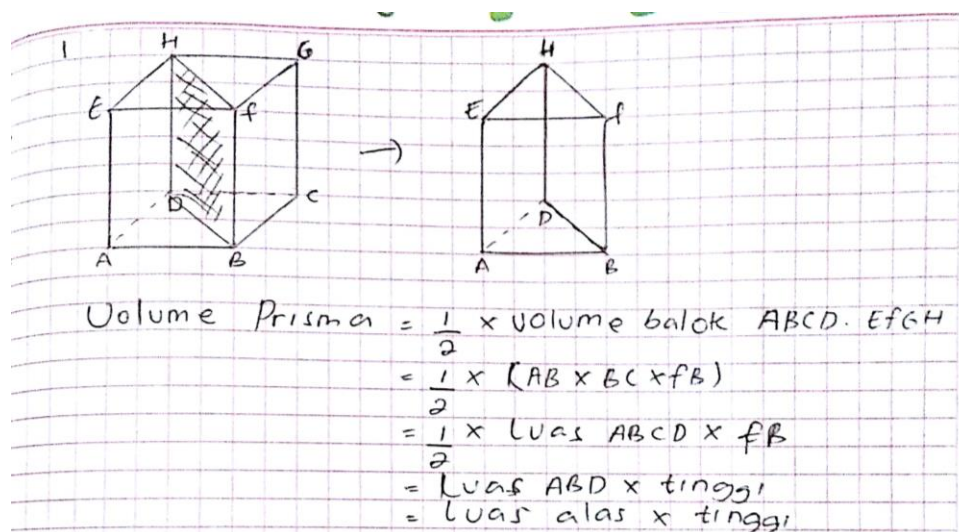 1
H G
E f
D C
A B
→
H
E f
D
A B
Volume Prisma = 1/2 × volume balok ABCD. EfGH
= 1/2 × (AB × BC × fB)
= 1/2 × Luas ABCD × fB
= Luas ABD × tinggi
= luas alas × tinggi